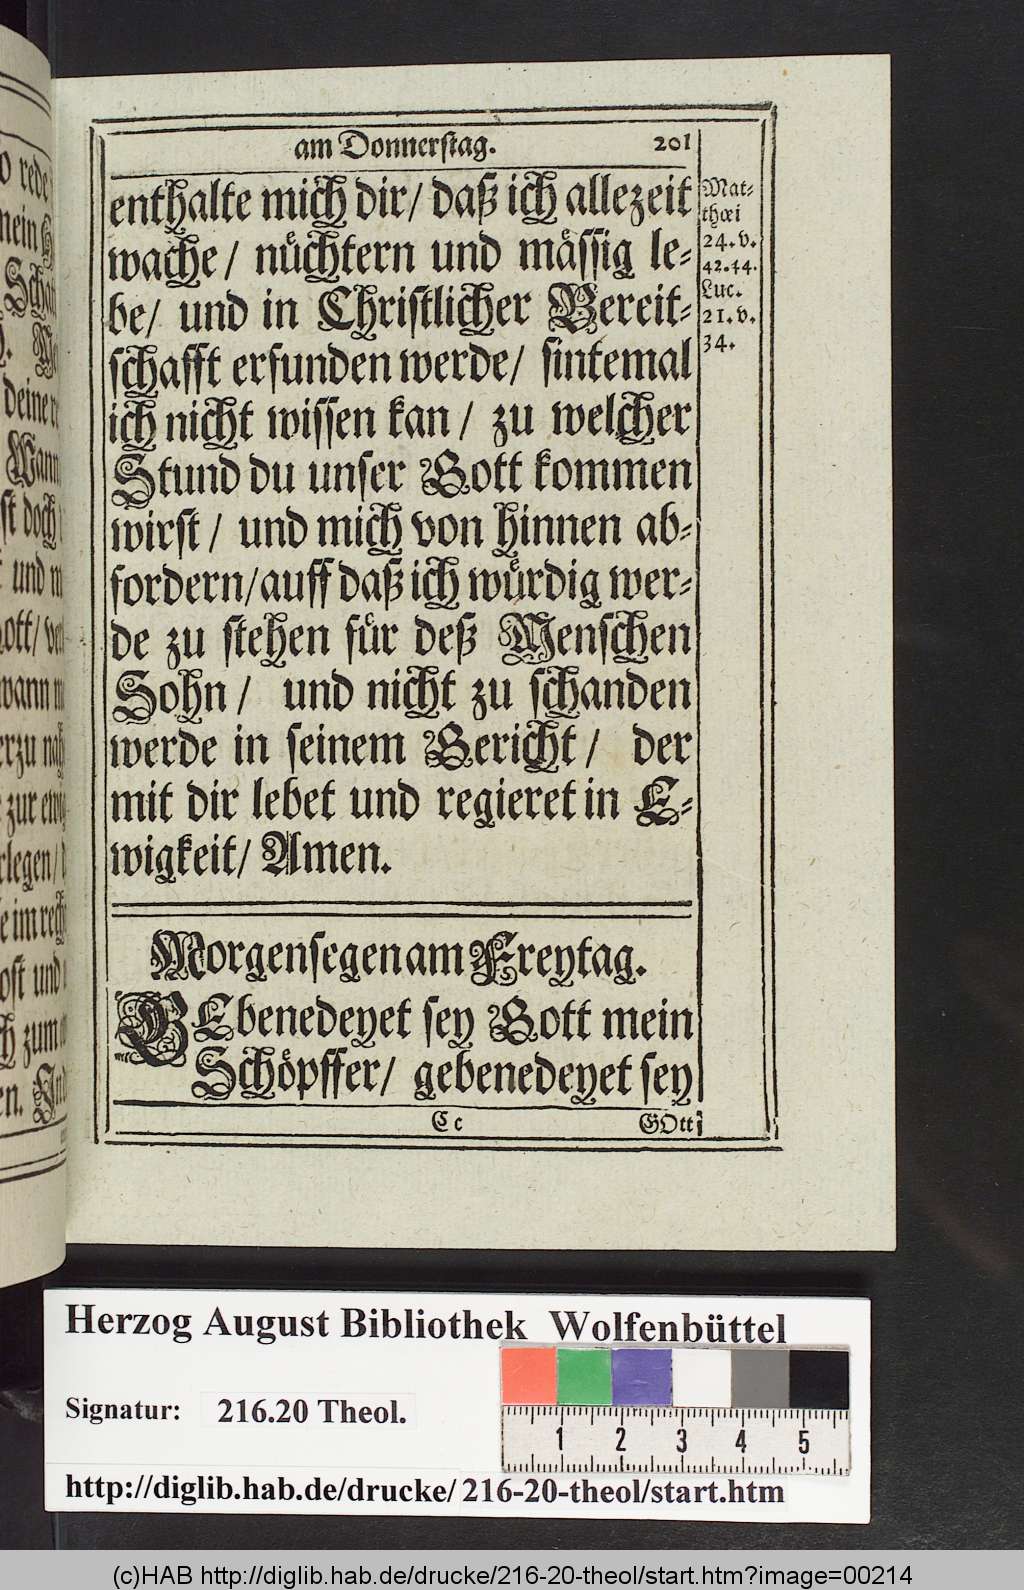 am Donnerstag. 201
enthalte mich dir/ daß ich allezeit
wache/ nüchtern und mässig le-
be/ und in Christlicher Bereit-
schafft erfunden werde/ sintemal
ich nicht wissen kan/ zu welcher
Stund du unser Gott kommen
wirst/ und mich von hinnen ab-
fordern/ auff daß ich würdig wer-
de zu stehen für deß Menschen
Sohn/ und nicht zu schanden
werde in seinem Gericht/ der
mit dir lebet und regieret in E-
wigkeit/ Amen.
Mat-
thæi
24. v.
42.44.
Luc.
21. v.
34.
Morgensegen am Freytag.
GEbenedeyet sey Gott mein
Schöpffer/ gebenedeyet sey
Cc GOtt
Herzog August Bibliothek Wolfenbüttel
Signatur: 216.20 Theol.
1 2 3 4 5
http://diglib.hab.de/drucke/216-20-theol/start.htm
(c)HAB http://diglib.hab.de/drucke/216-20-theol/start.htm?image=00214